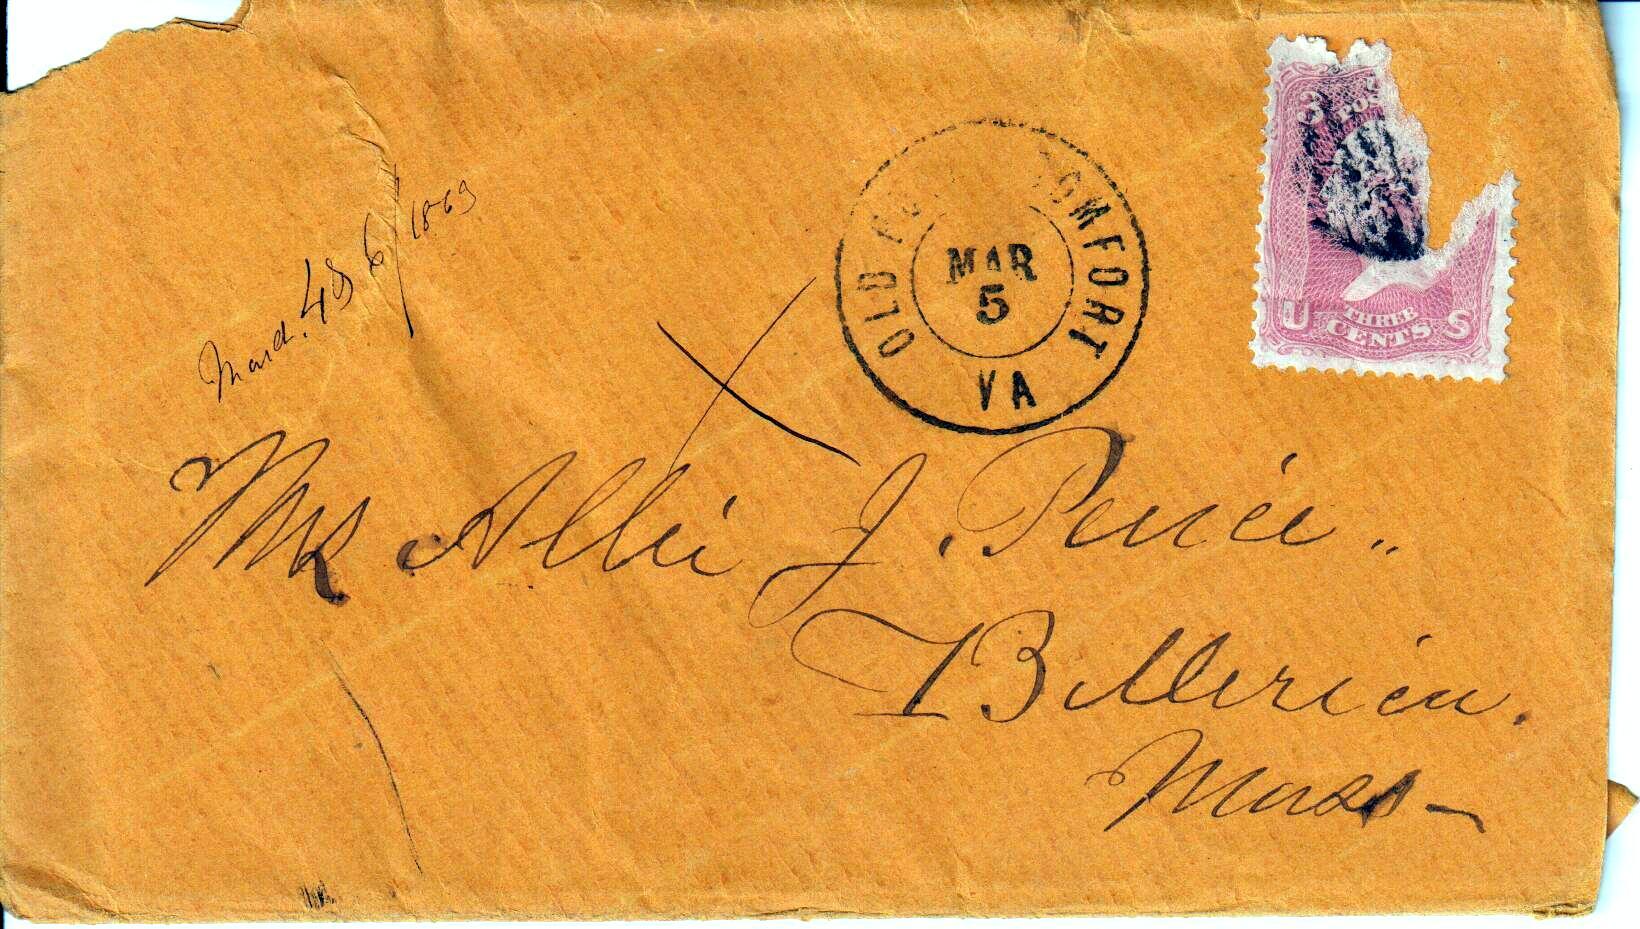 March. 4 & 6/1869
OLD POINT COMFORT
MAR
5
VA
3
POS
U THREE S
CENTS
Mrs Allie J. Peirce..
Billerica.
Mass-